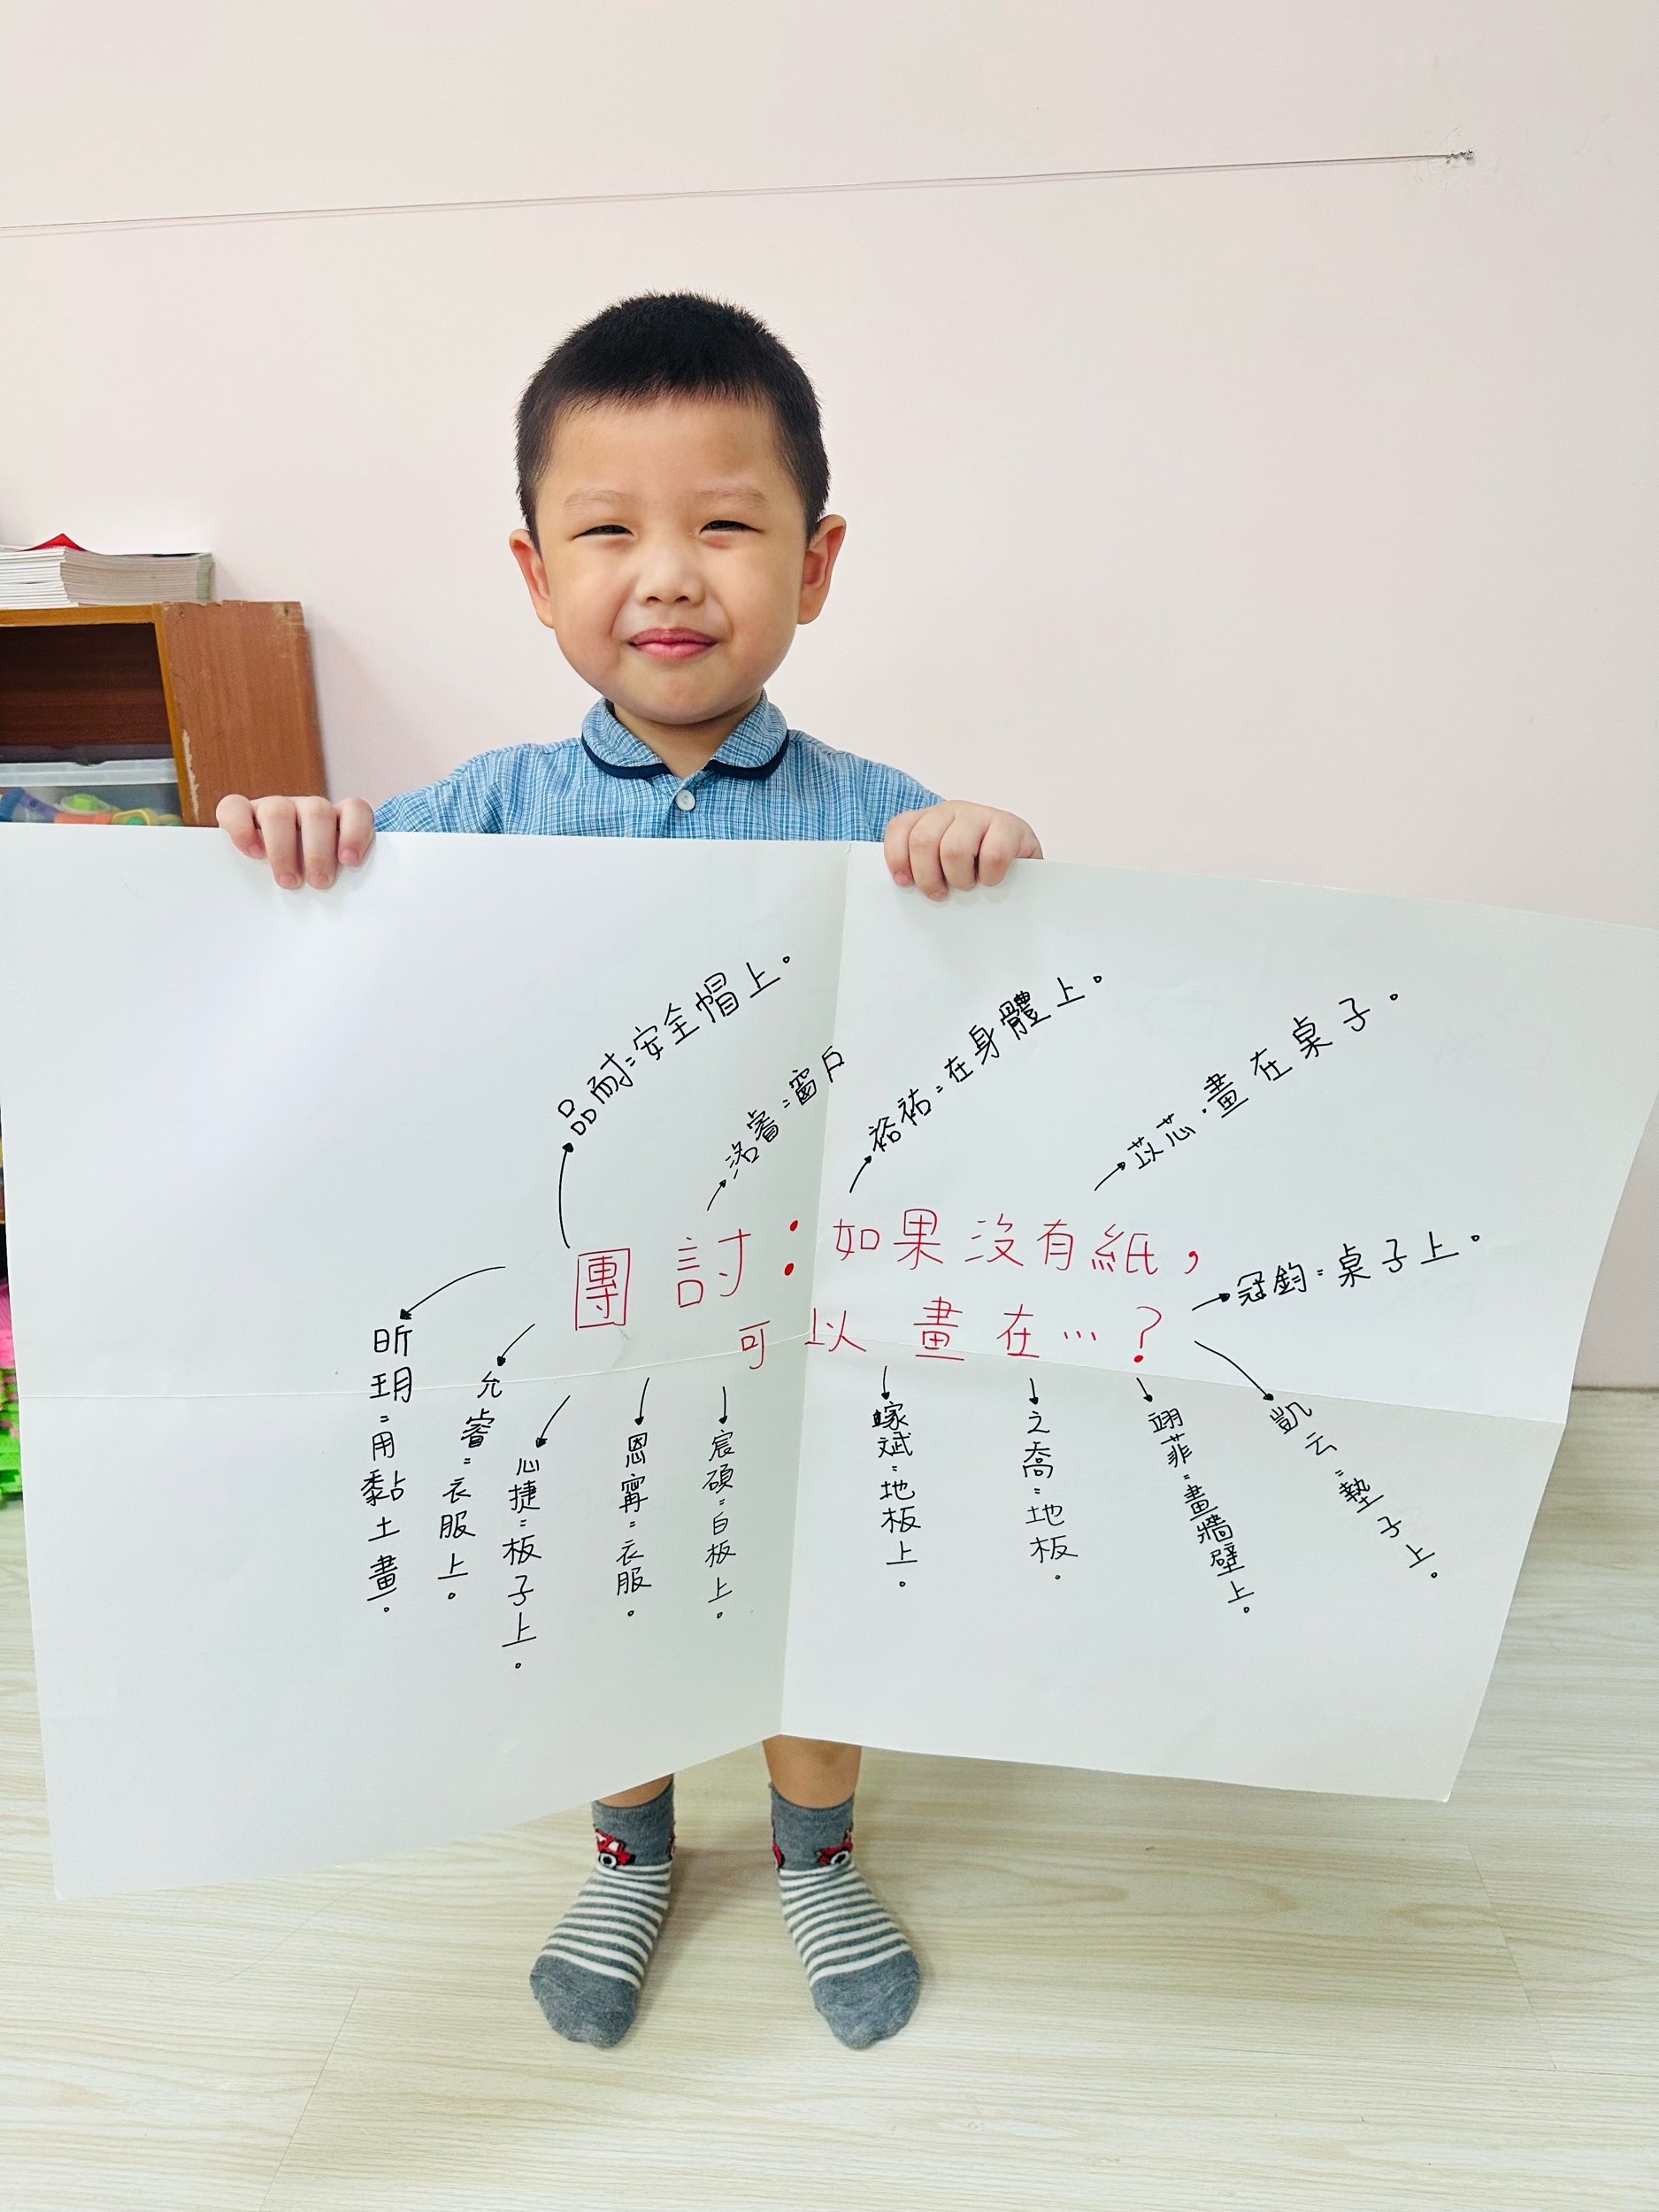 團討：如果沒有紙，
可以畫在…？
品耐：安全帽上。
洛睿：窗戶
裕祐：在身體上。
苡芯：畫在桌子。
冠鈞：桌子上。
凱云：墊子上。
翊菲：畫牆壁上。
之喬：地板。
斌：地板上。
宸碩：白板上。
恩甯：衣服。
心捷：板子上。
允睿：衣服上。
昕玥：用黏土畫。